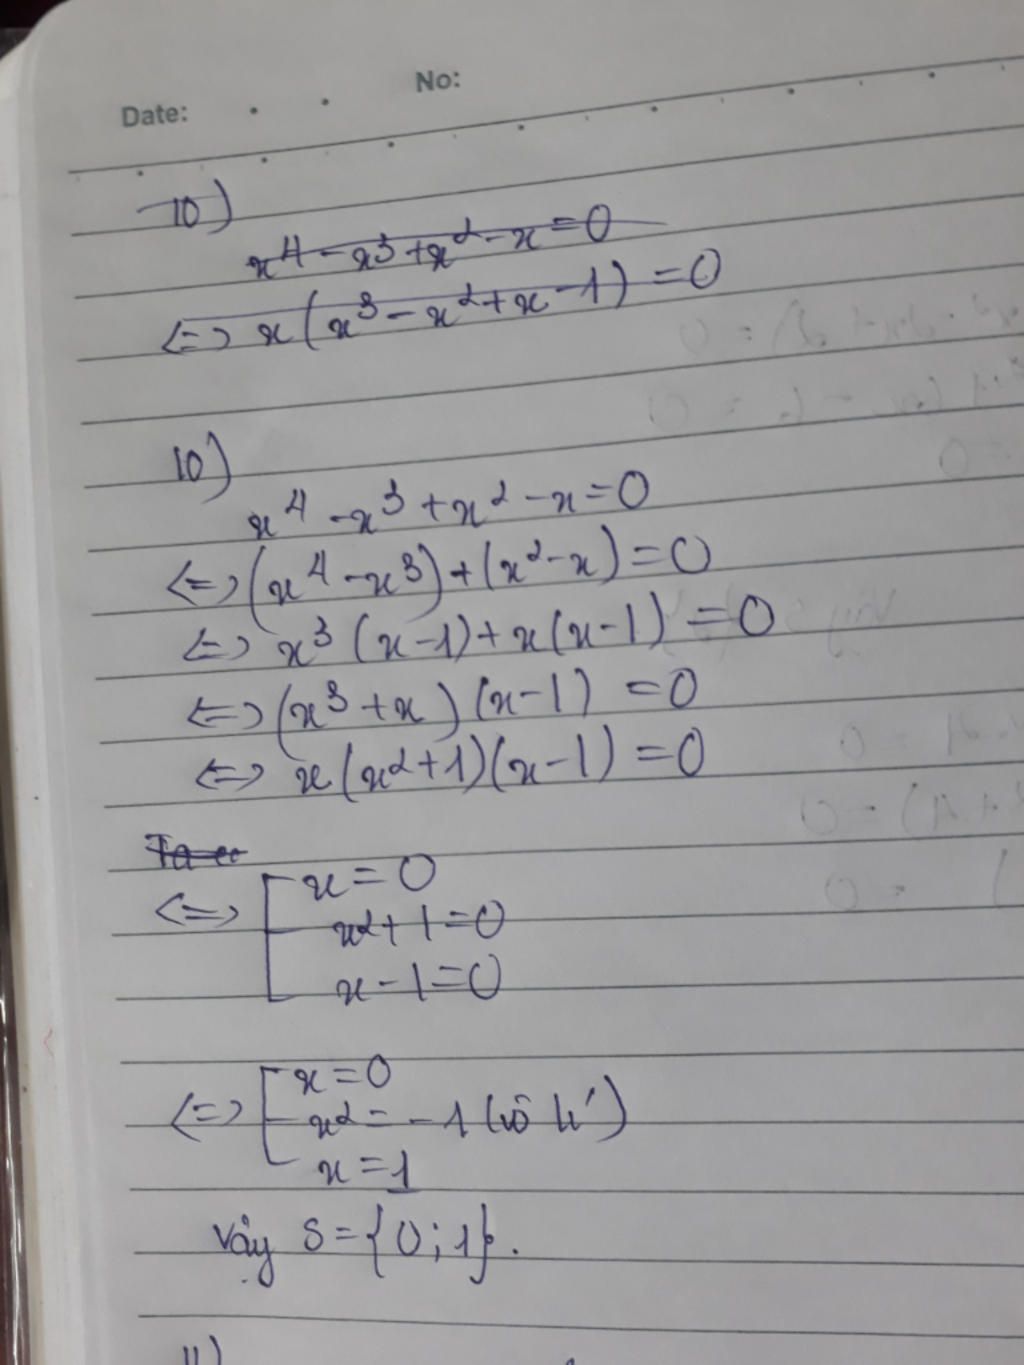 Date:
No:
10)
x⁴ - x³ + x² - x = 0
<=> x(x³ - x² + x - 1) = 0
10)
x⁴ - x³ + x² - x = 0
<=> (x⁴ - x³) + (x² - x) = 0
<=> x³ (x - 1) + x(x - 1) = 0
<=> (x³ + x) (x - 1) = 0
<=> x(x² + 1)(x - 1) = 0
Ta có
<=> [ x = 0
x² + 1 = 0
x - 1 = 0
<=> [ x = 0
x² = -1 (vô lí)
x = 1
Vậy S = {0; 1}.
11)